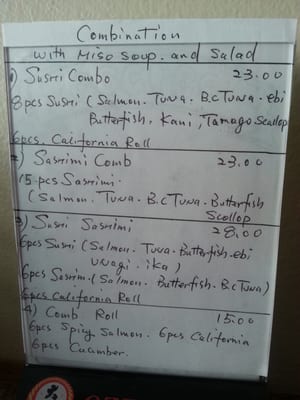 Combination
with Miso Soup. and Salad
1) Susri Combo 23.00
8pcs Susri (Salmon. Tuna. B.C Tuna. ebi
Butterfish. Kani, Tamago Scallop
6pcs. California Roll
2) Sasrimi Comb 23.00
15-pcs Sasrimi.
(Salmon. Tuna. B.C Tuna. Butterfish
Scollop
3) Susri Sasrimi 28.00
6pcs Susri (Salmon. Tuna. Butterfish. ebi
unagi. ika)
6pcs Sasrimi. (Salmon. Butterfish. B.c Tuna)
6pcs California Roll
4) Comb Roll 15.00
6pcs Spicy Salmon. 6pcs California
6pcs Cucumber.